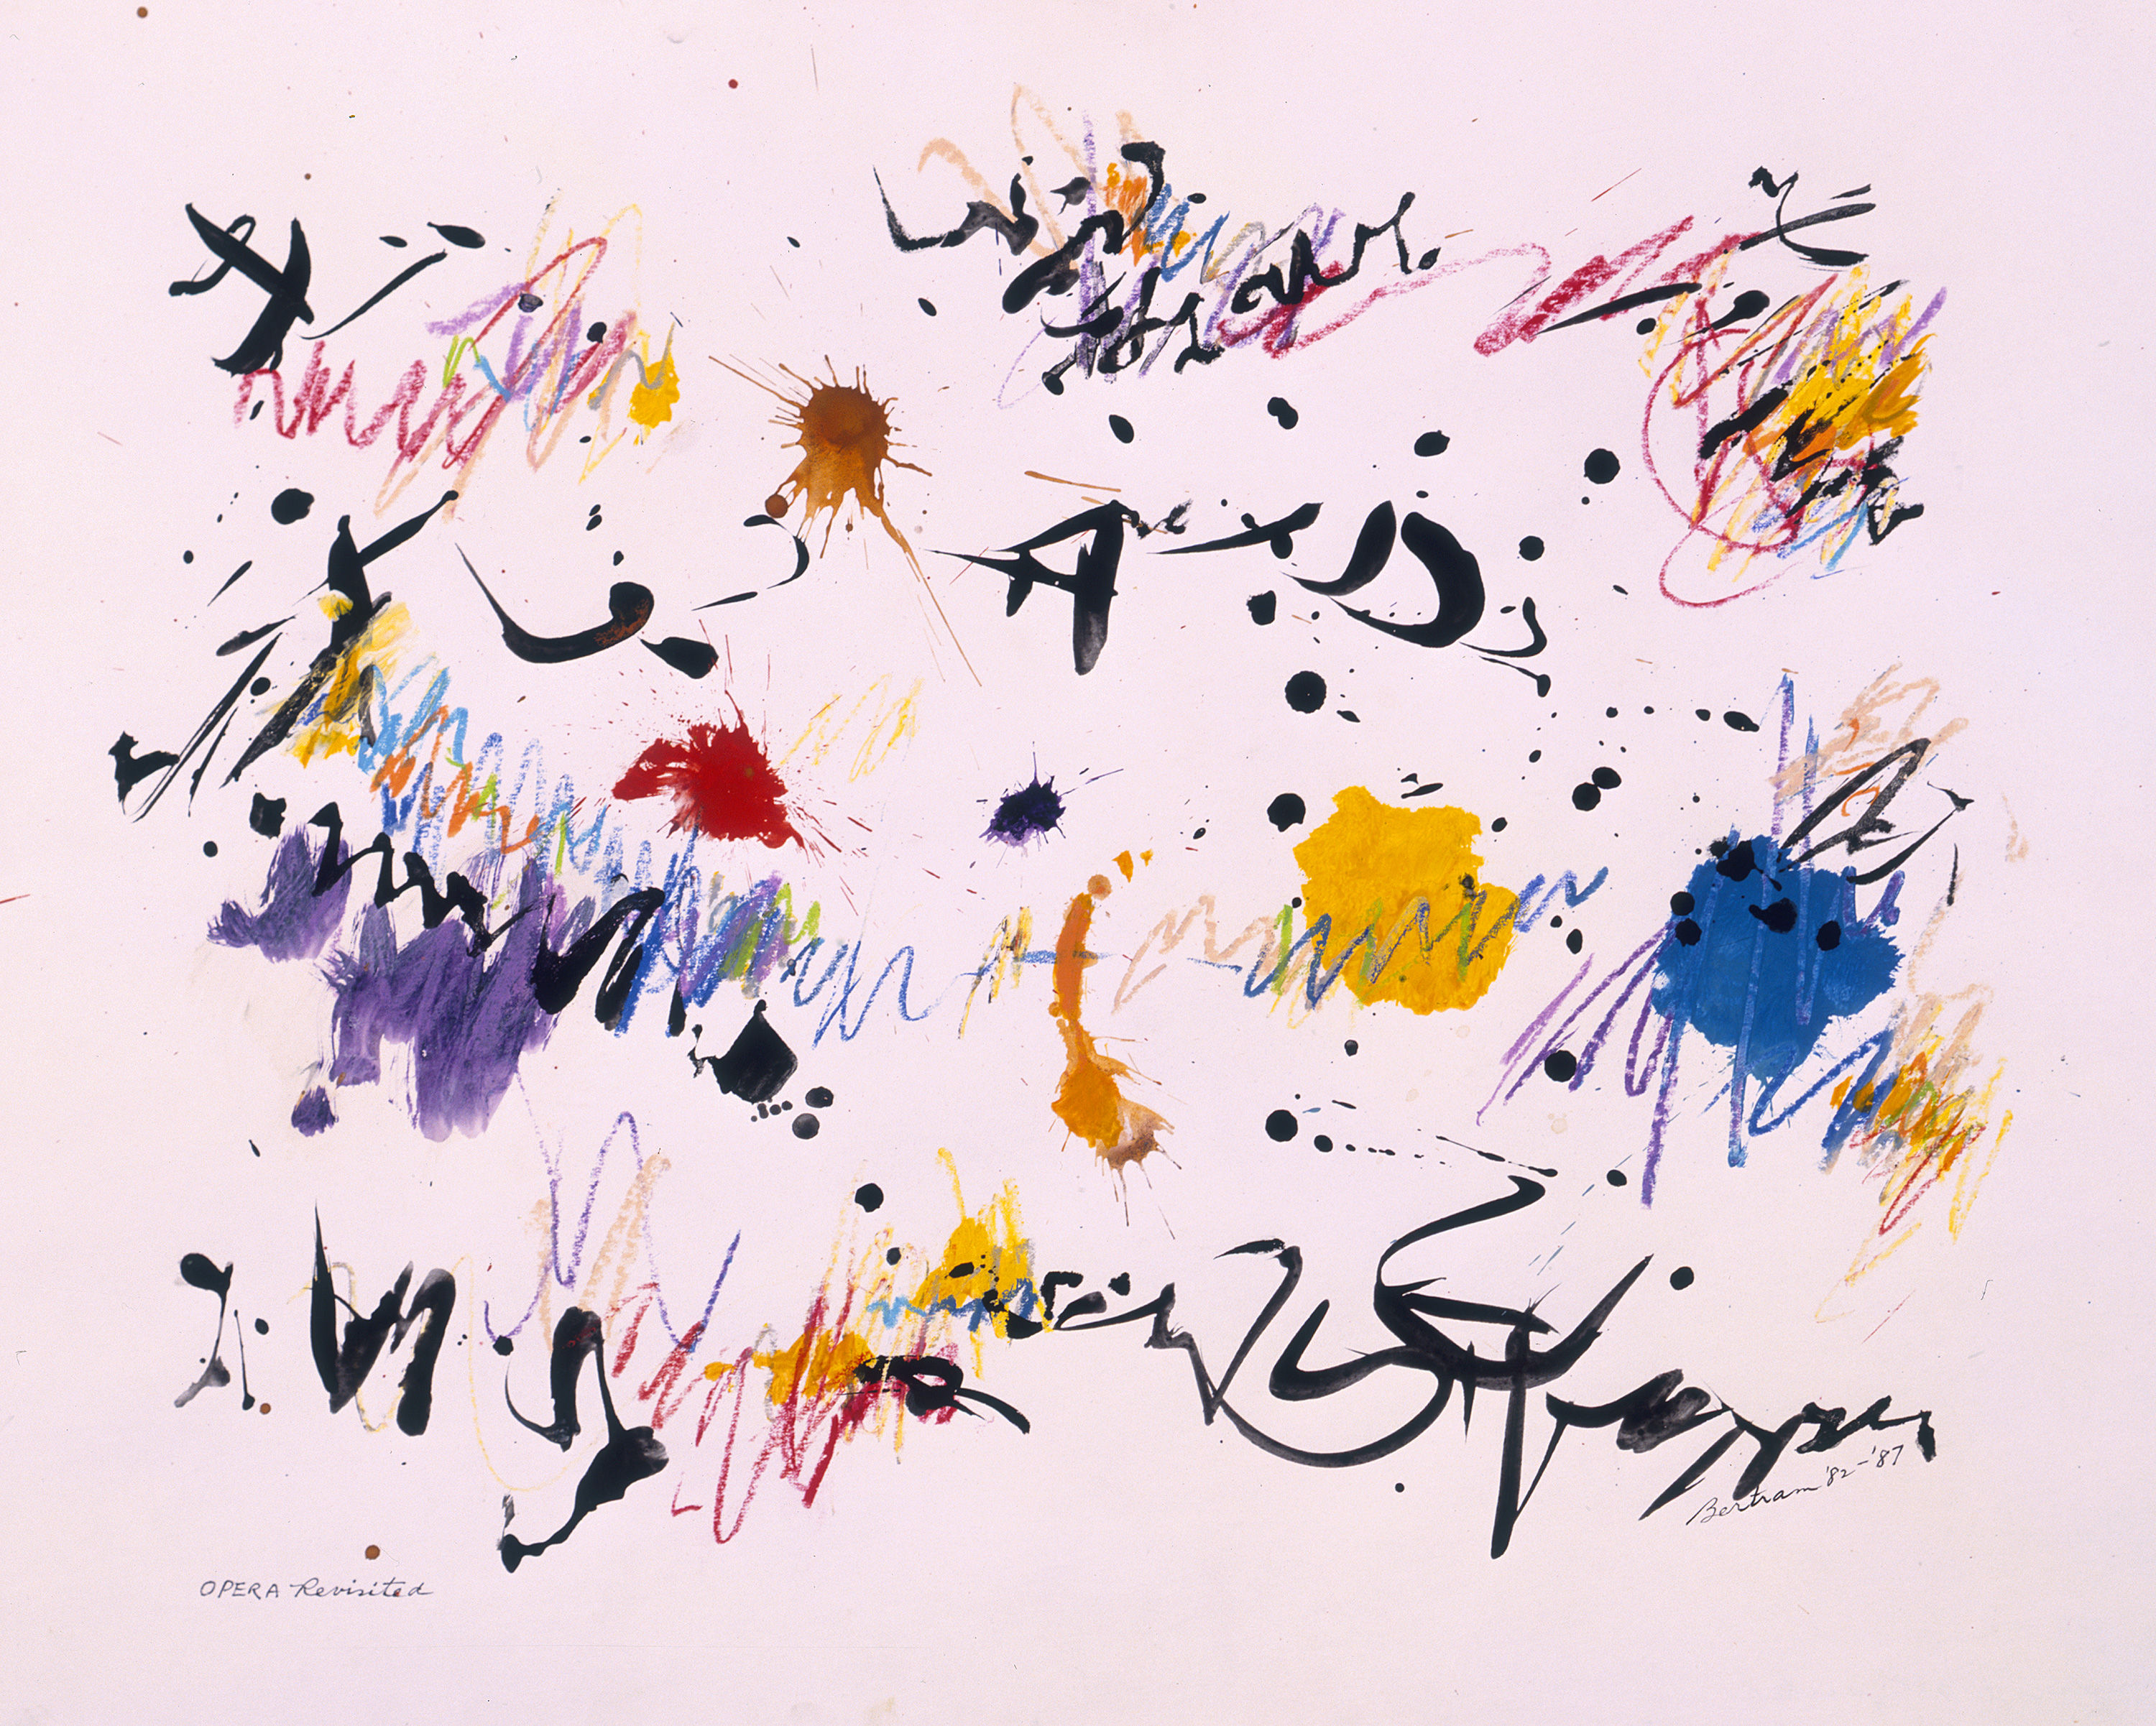 Bertram '82-'87
OPERA Revisited